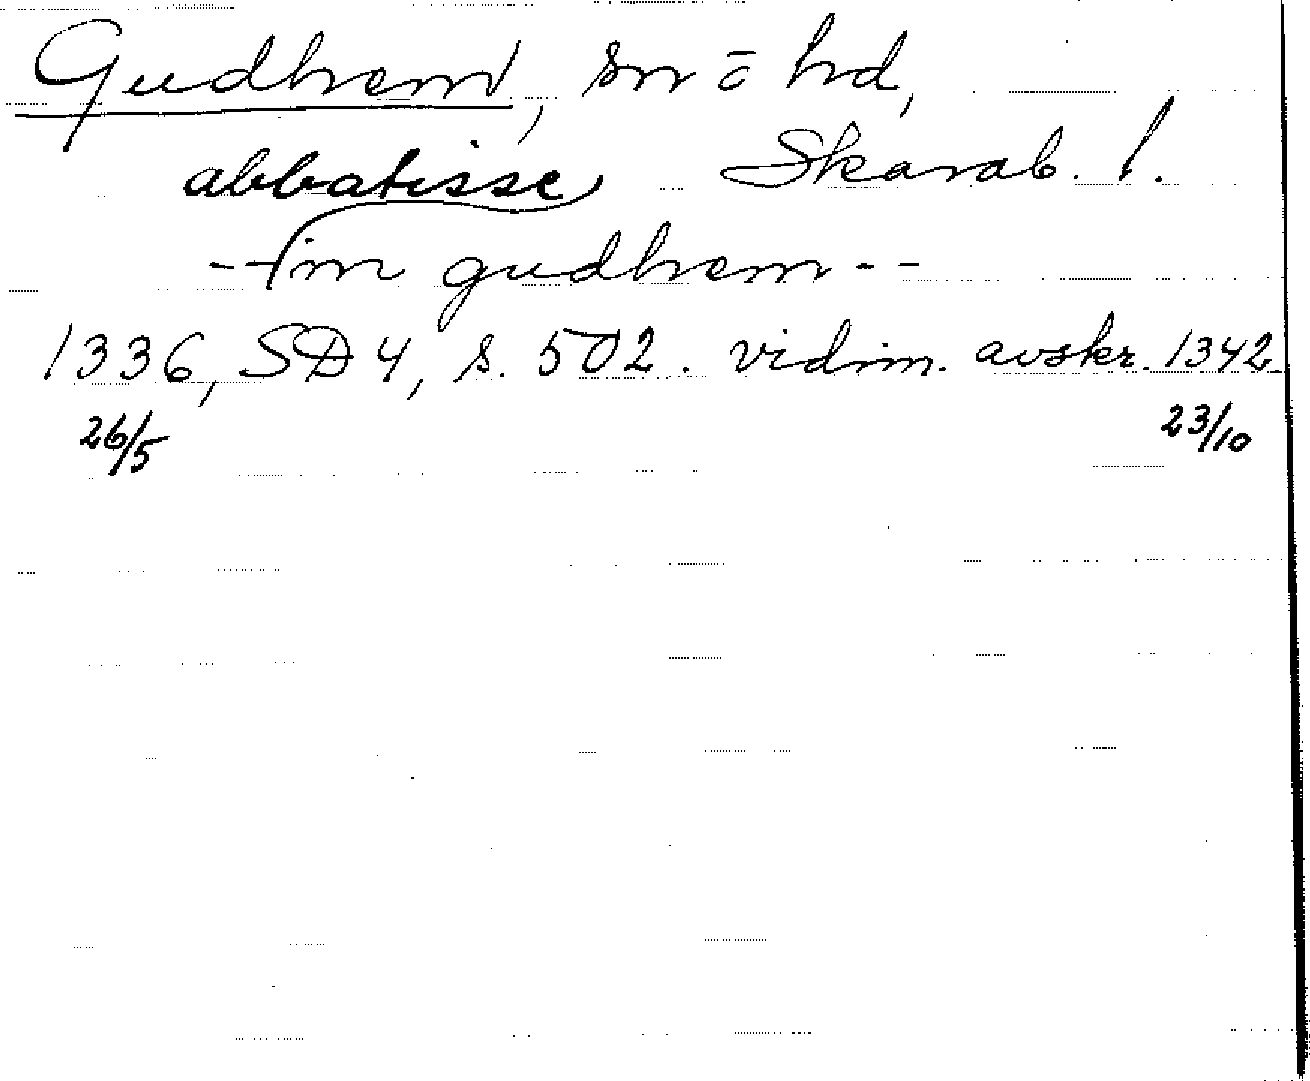 Gudhem, sn o hd,
abbatisse Skarab. l.
-- in gudhem --
1336, SD4, s. 502. vidim. avskr. 1342
26/5 23/10